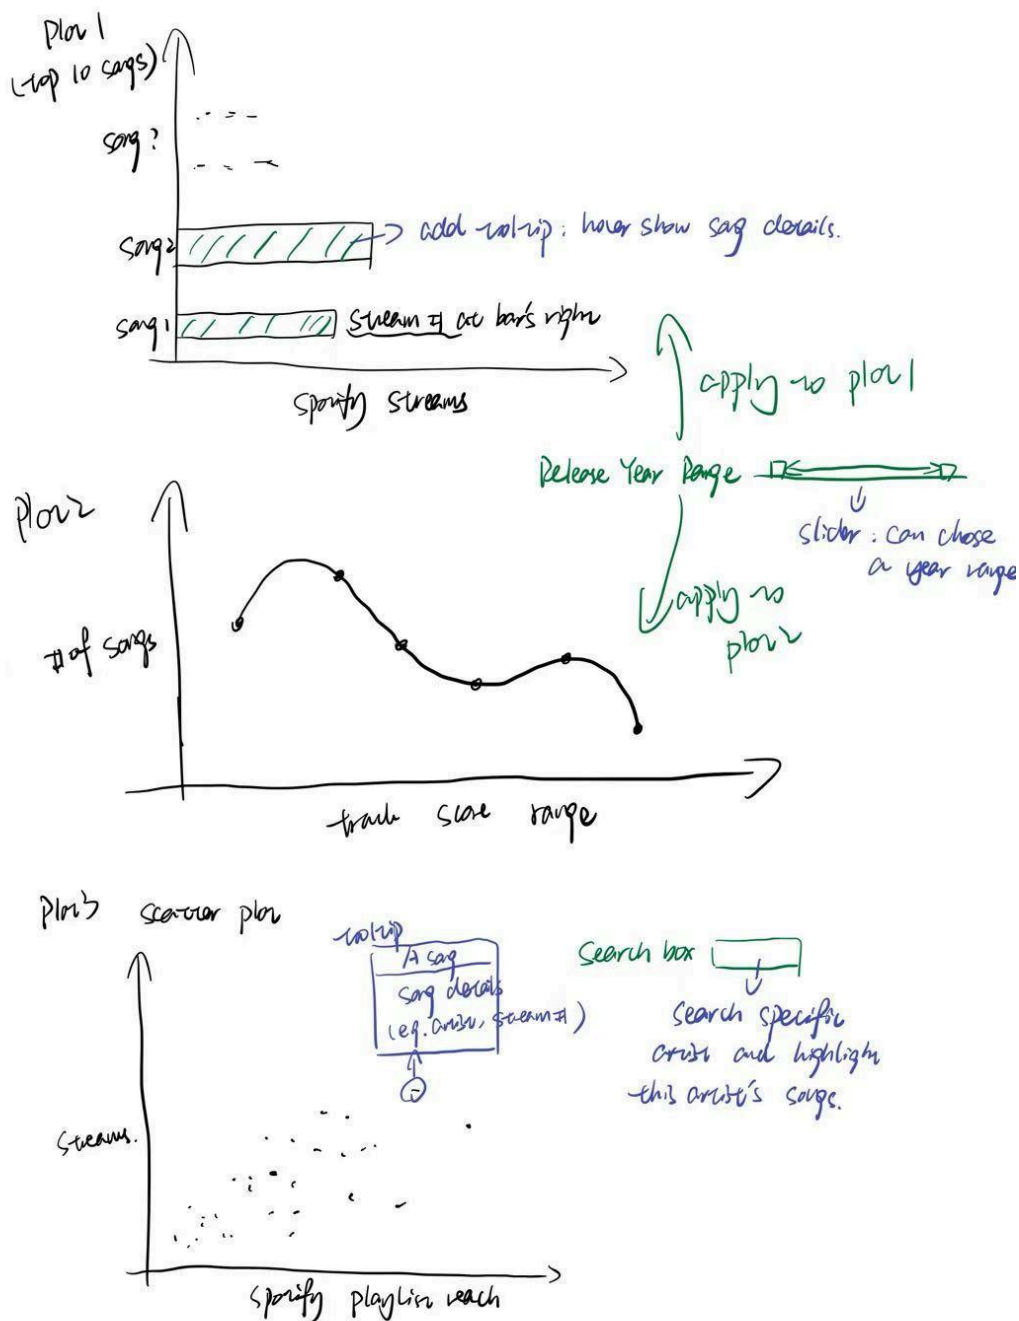 Plot 1
(top 10 songs)
song ?
song 2
add tooltip: hover show song details.
song 1
stream # at bar's right
Spotify streams
apply to plot 1
Release Year Range
slider: can chose
a year range
apply to
plot 2
Plot 2
# of songs
track score range
Plot 3 scatter plot
tooltip
A song
song details
(eg. artist, stream #)
Search box
search specific
artist and highlight
this artist's songs.
streams.
Spotify playlist reach